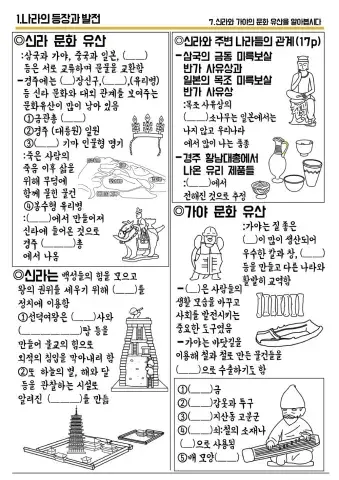 1.나라의 등장과 발전
7.신라와 가야의 문화 유산을 알아봅시다
◎신라 문화 유산
:삼국과 가야, 중국과 일본, (____)
등은 서로 교류하며 문물을 교환함
-경주에는 (__)장신구,(____),(유리병)
등 신라 문화와 대외 관계를 보여주는
문화유산이 많이 남아 있음
①금관총 (____)
②경주 (대릉원) 일원
③(____) 기마 인물형 명기
:죽은 사람의
죽음 이후 삶을
위해 무덤에
함께 묻힌 물건
④봉수형 유리병
:(____)에서 만들어져
신라에 들어온 것으로
경주 (______)총
에서 나옴
◎신라는 백성들의 힘을 모으고
왕의 권위를 세우기 위해 (____)를
정치에 이용함
①선덕여왕은 (____)사와
(________)탑 등을
만들어 불교의 힘으로
외적의 침입을 막아내려 함
②또 하늘의 별, 해와 달
등을 관찰하는 시설로
알려진 (____)를 만듦
◎신라와 주변 나라들의 관계(17p)
-삼국의 금동 미륵보살
반가 사유상과
일본의 목조 미륵보살
반가 사유상
:목조 사유상의
(____)소나무는 일본에서는
나지 않고 우리나라
에서 많이 나는 종류
-경주 황남대총에서
나온 유리 제품들
:(____)에서
전해진 것으로 추정
◎가야 문화 유산
:가야는 질 좋은
(__)이 많이 생산되어
우수한 칼과 창, (____)
등을 만들고 다른 나라와
활발히 교역함
-(__)은 사람들의
생활 모습을 바꾸고
사회를 발전시키는
중요한 도구였음
-가야는 바닷길을
이용해 철과 철로 만든 물건들을
(____)으로 수출하기도 함
①(____)금
②(____)갑옷과 투구
③(____)지산동 고분군
④(____)쇠:철의 소재나
(__)으로 사용됨
⑤배 모양(____)